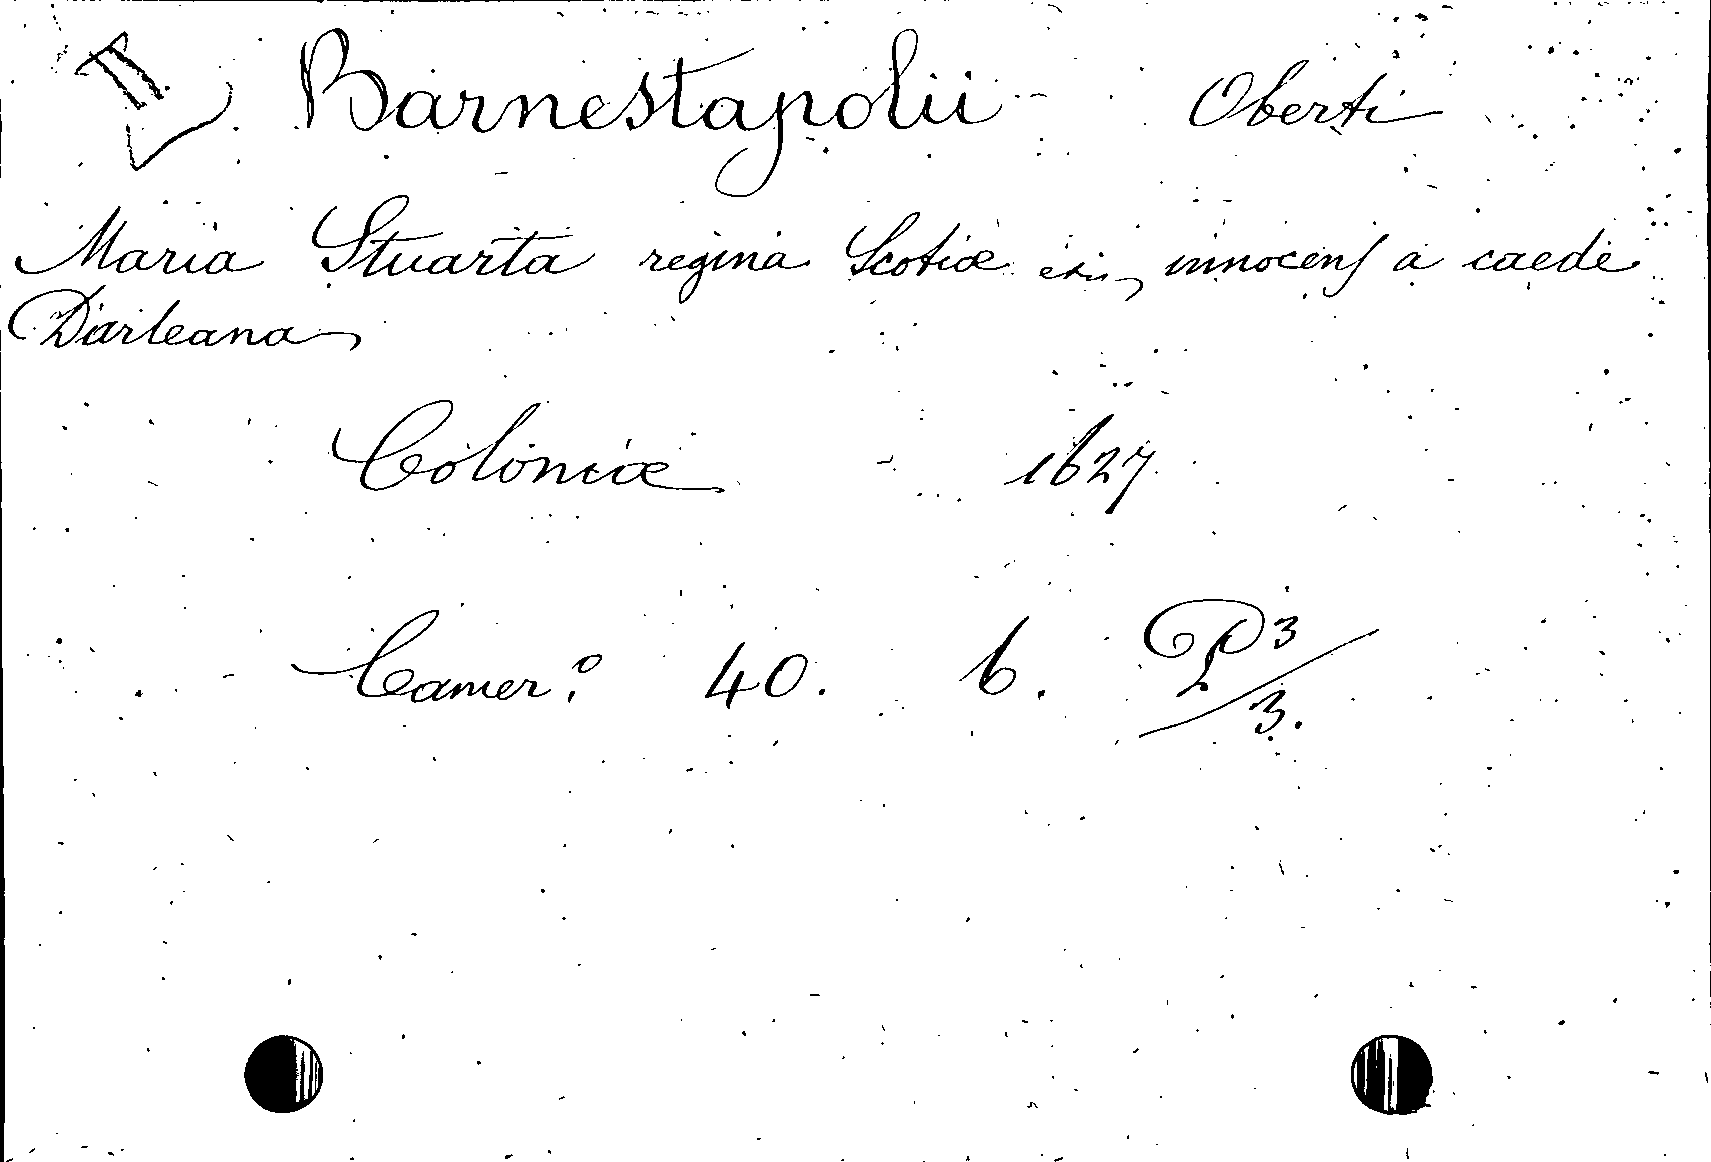 Barnestapolii Oberti
Maria Stuarta regina Scotiæ innocens a caede
Darleana
Coloniæ 1627
Camer.º 40. 6. P3/3.